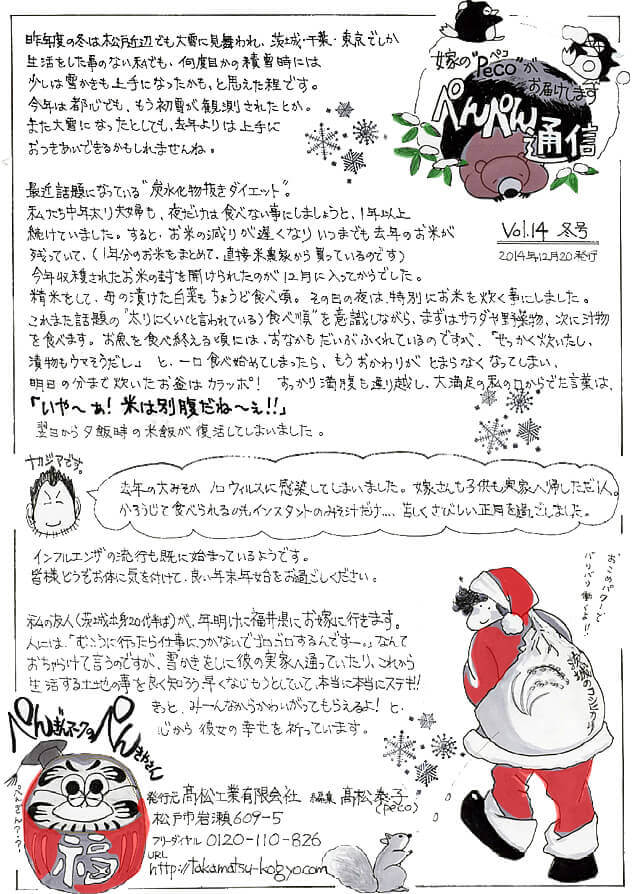 昨年度の冬は松戸近辺でも大雪に見舞われ、茨城・千葉・東京でしか
生活をした事のない私でも、何度目かの積雪時には
少しは雪かきも上手になったかも、と思えた程です。
今年は都心でも、もう初雪が観測されたとか。
また大雪になったとしても、去年よりは上手に
おつきあいできるかもしれませんね。
嫁の"Peco"が
ペコ
お届けします
ぺんぺん通信
Vol.14 冬号
2014年12月20発行
最近話題になっている"炭水化物抜きダイエット"。
私たち中年太り夫婦も、夜だけは食べない事にしましょうと、1年以上
続けていました。すると、お米の減りが遅くなりいつまでも去年のお米が
残っていて、(1年分のお米をまとめて、直接米農家から買っているのです)
今年収穫されたお米の封を開けられたのが12月に入ってからでした。
精米をして、母の漬けた白菜もちょうど食べ頃。その日の夜は、特別にお米を炊く事にしました。
これまた話題の"太りにくい(と言われている)食べ順"を意識しながら、まずはサラダや野菜物、次に汁物
を食べます。お魚を食べ終える頃には、おなかもだいぶふくれているのですが、「せっかく炊いたし、
漬物もウマそうだし。」と、一口食べ始めてしまったら、もうおかわりがとまらなくなってしまい、
明日の分まで炊いたお釜はカラッポ! すっかり満腹も通り越し、大満足の私の口からでた言葉は、
「いや〜ぁ!米は別腹だね〜ぇ!!」
翌日から夕飯時の米飯が復活してしまいました。
ナカジマです。
去年の大みそか、ノロウィルスに感染してしまいました。嫁さんも子供も実家へ帰しただ1人。
かろうじて食べられるのもインスタントのみそ汁だけ…、苦しくさびしい正月を過ごしました。
インフルエンザの流行も既に始まっているようです。
皆様どうぞお体に気を付けて、良い年末年始をお過ごしください。
おこめパワーで
バリバリ働くよ!!
私の友人(茨城出身20代半ば)が、年明けに福井県にお嫁に行きます。
人には、「むこうに行ったら仕事につかないでゴロゴロするんですー。」なんて
おちゃらけて言うのですが、雪かきをしに彼の実家へ通っていたり、これから
生活する土地の事を良く知ろう、早くなじもうとしていて、本当に本当にステキ!!
きっと、みーんなからかわいがってもらえるよ!と、
心から彼女の幸せを祈っています。
茨城のコシヒカリ
ぺんぎんマークのぺんきやさん
福
発行元 高松工業有限会社 編集 高松泰子
(peco)
松戸市岩瀬609-5
フリーダイヤル 0120-110-826
URL
http://takamatsu-kogyo.com